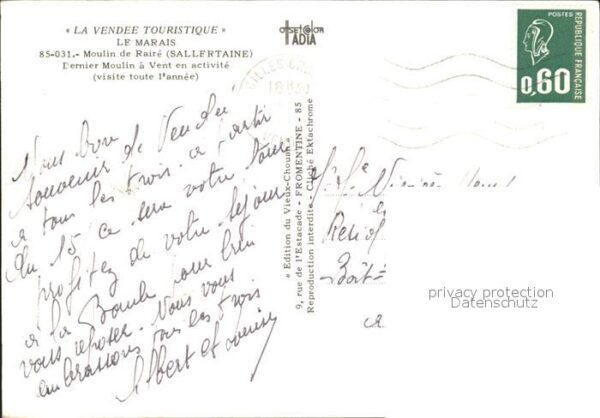 « LA VENDEE TOURISTIQUE »
LE MARAIS
85-031.- Moulin de Rairé (SALLERTAINE)
Dernier Moulin à Vent en activité
(visite toute l'année)
offset color
IATDA
POSTES
REPUBLIQUE FRANÇAISE
0,60
18 H
Bon
souvenir de Vendée
a tous les trois. a partir
du 15 ce sera votre tour
profitez de votre séjour
a la Baule pour bien
vous reposer. Nous vous
embrassons tous les trois
Albert et Louise
« Edition du Vieux-Chouan »
9, rue de l'Estacade - FROMENTINE - 85
Reproduction interdite - Cliché Ektachrome
privacy protection
Datenschutz